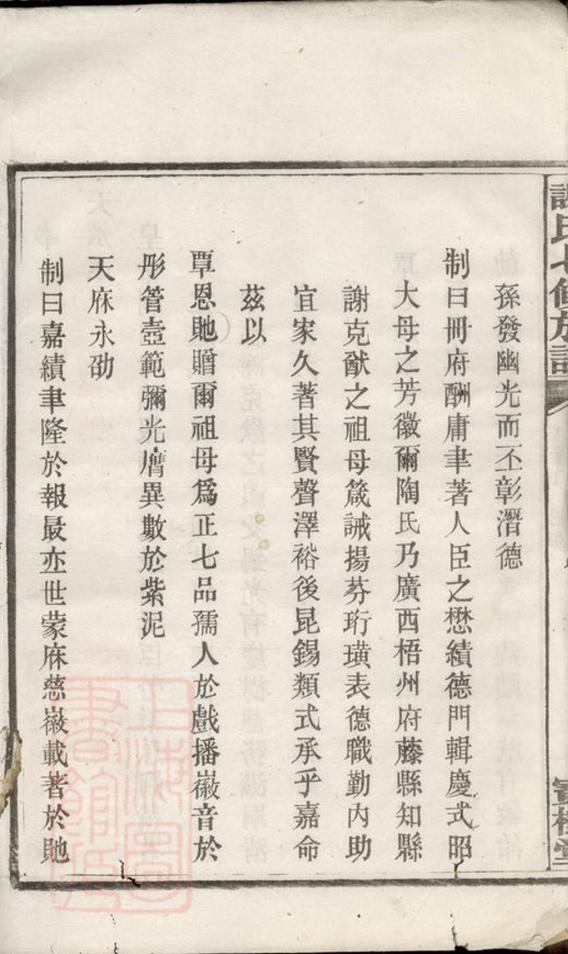 謝氏七修族譜
寶樹堂
孫發幽光而丕彰潛德
制曰冊府酬庸聿著人臣之懋績德門輯慶式昭
大母之芳徽爾陶氏乃廣西梧州府藤縣知縣
謝克猷之祖母箴誡揚芬珩璜表德職勤內助
宜家久著其賢聲澤裕後昆錫類式承乎嘉命
茲以
覃恩貤贈爾祖母爲正七品孺人於戲播徽音於
彤管壼範彌光膺異數於紫泥
天庥永劭
制曰嘉績聿隆於報最亦世蒙庥慈徽載著於貤